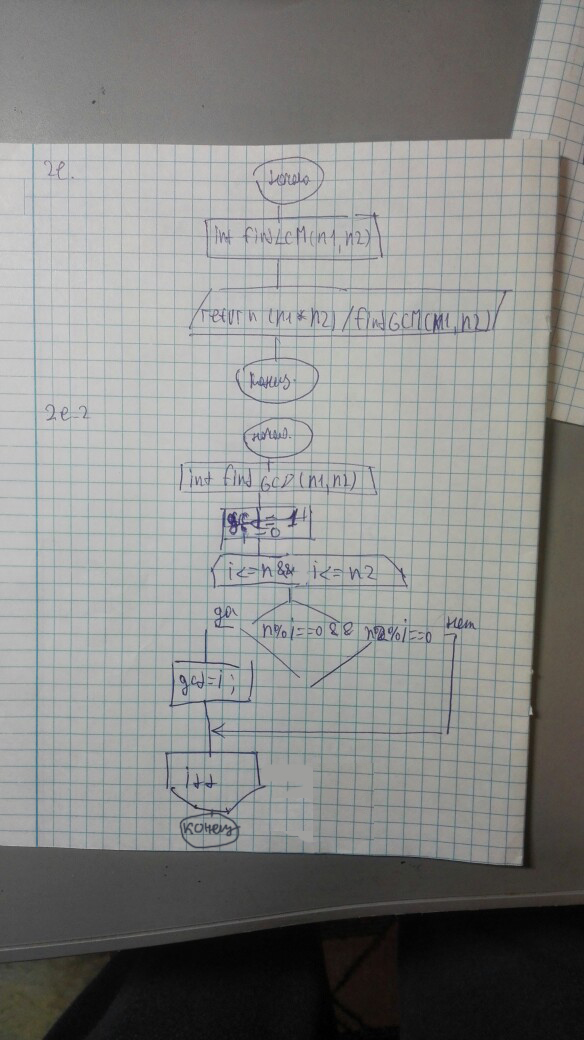 2e.
начало
int findLCM(n1,n2)
return (n1*n2)/findGCM(n1,n2)
конец.
2e-2
начало.
int find GCD (n1,n2)
=0
i<=n&& i<=n2
да
n%i==0 && n2%i==0
нет
gcd=i;
i++
конец